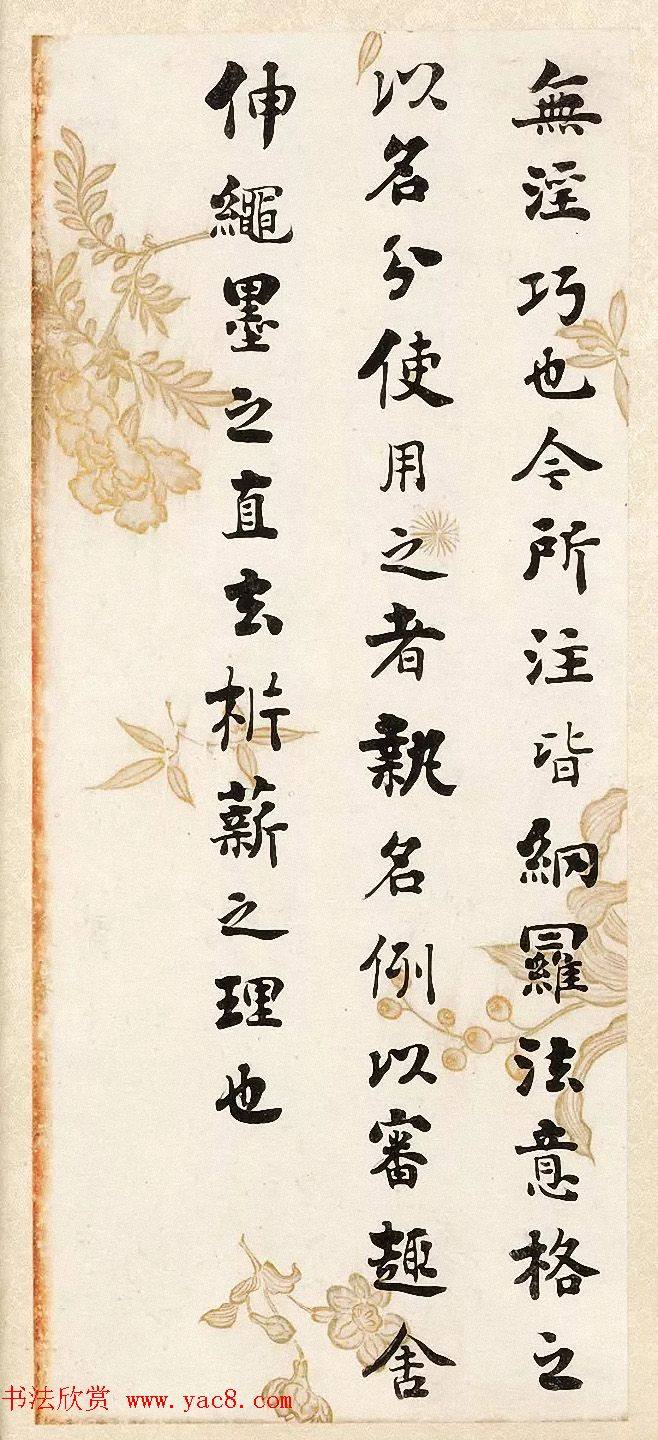 無淫巧也今所注皆網羅法意格之
以名分使用之者執名例以審趣舍
伸繩墨之直去析薪之理也
书法欣赏 www.yac8.com